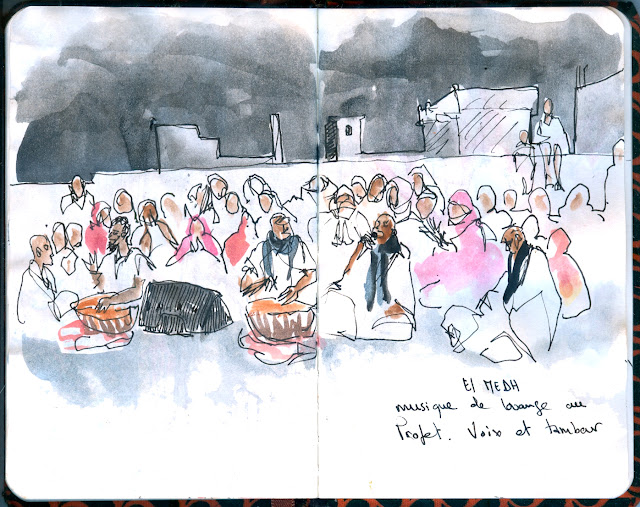 El MEDH
musique de louange au
Profet. Voix et tambour